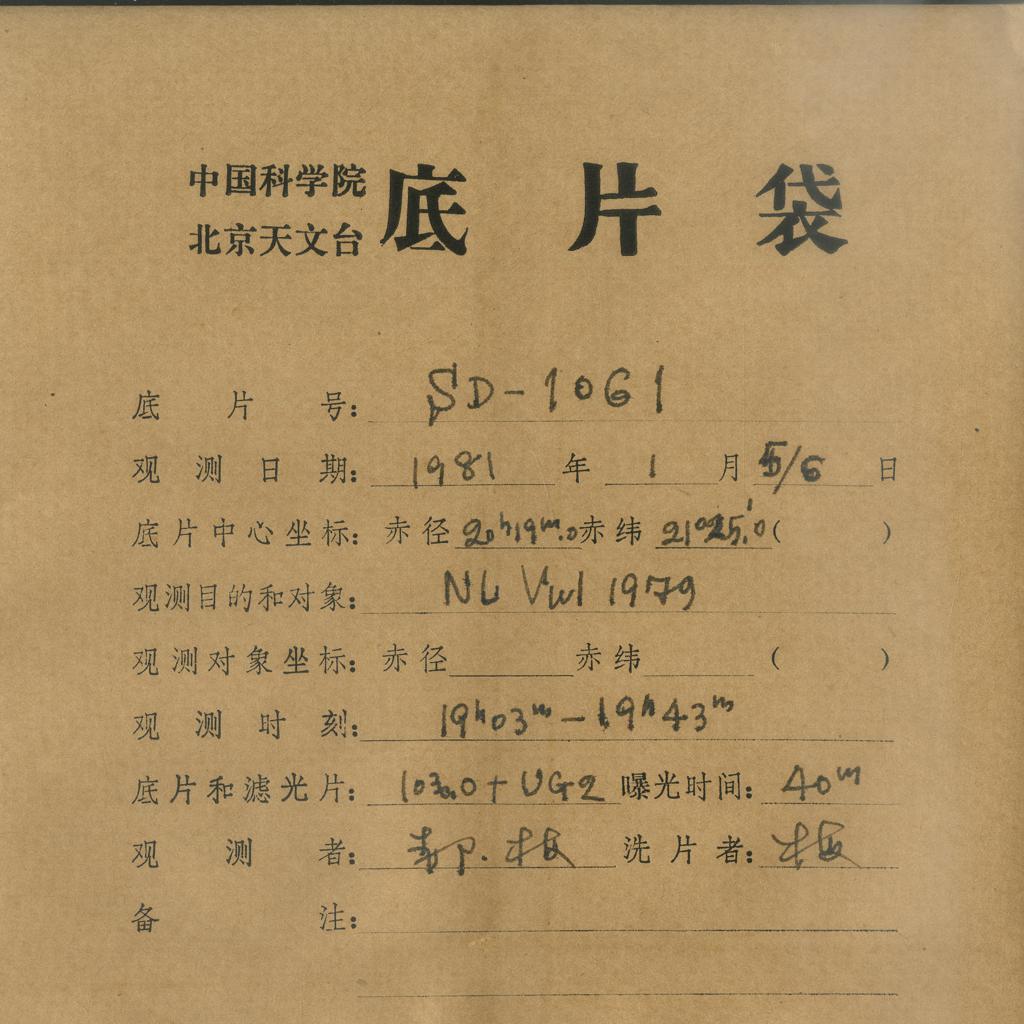 中国科学院
北京天文台
底片袋
底片号: SD-1061
观测日期: 1981 年 1 月 5/6 日
底片中心坐标: 赤径 20ʰ19ᵐ.0 赤纬 21°25'.0 ( )
观测目的和对象: NL Vul 1979
观测对象坐标: 赤径 赤纬 ( )
观测时刻: 19ʰ03ᵐ-19ʰ43ᵐ
底片和滤光片: 103aO + UG2 曝光时间: 40ᵐ
观测者: 洗片者:
备注: